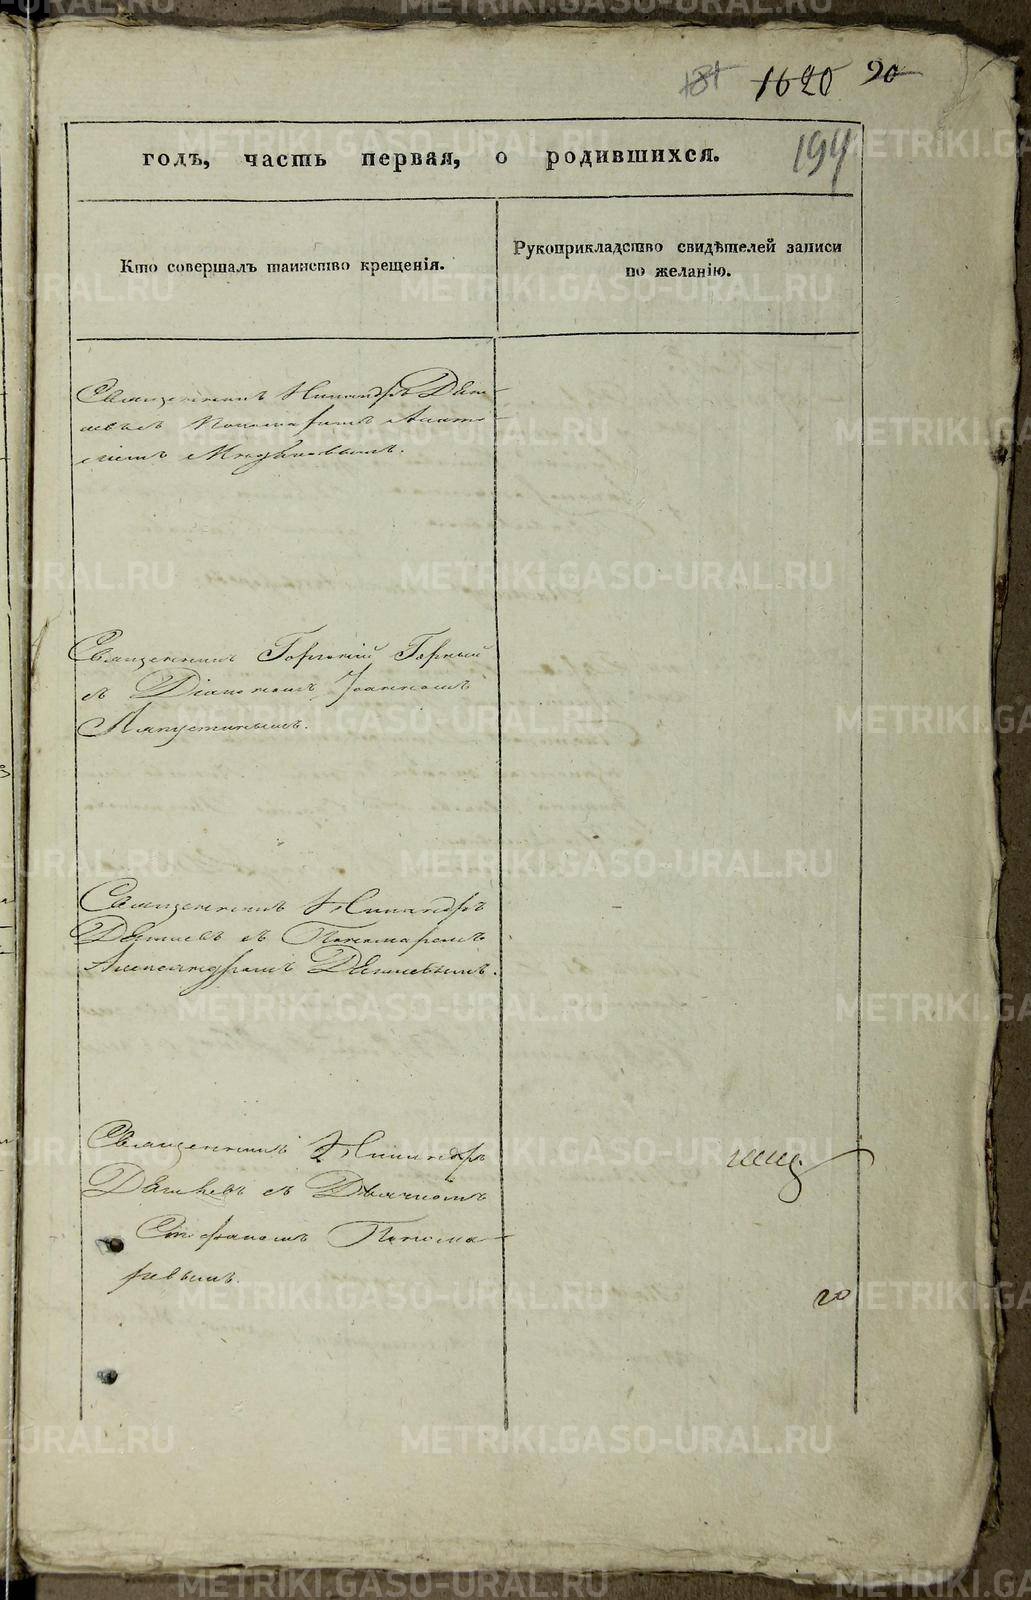 181 1620 90
194
годъ, часть первая, о родившихся.
Кто совершалъ таинство крещенія.
Рукоприкладство свидѣтелей записи
по желанію.
Священникъ Никандръ Дяги-
левъ съ Пономаремъ
Священникъ Горгоній Горный
съ Діакономъ Іоанномъ
Ляпустинымъ.
Священникъ Никандръ
Дягилевъ съ Пономаремъ
Александромъ Дягилевымъ.
Священникъ Никандръ
Дягилевъ съ Дьячкомъ
Стефаномъ Понома-
ревымъ.
20
METRIKI.GASO-URAL.RU